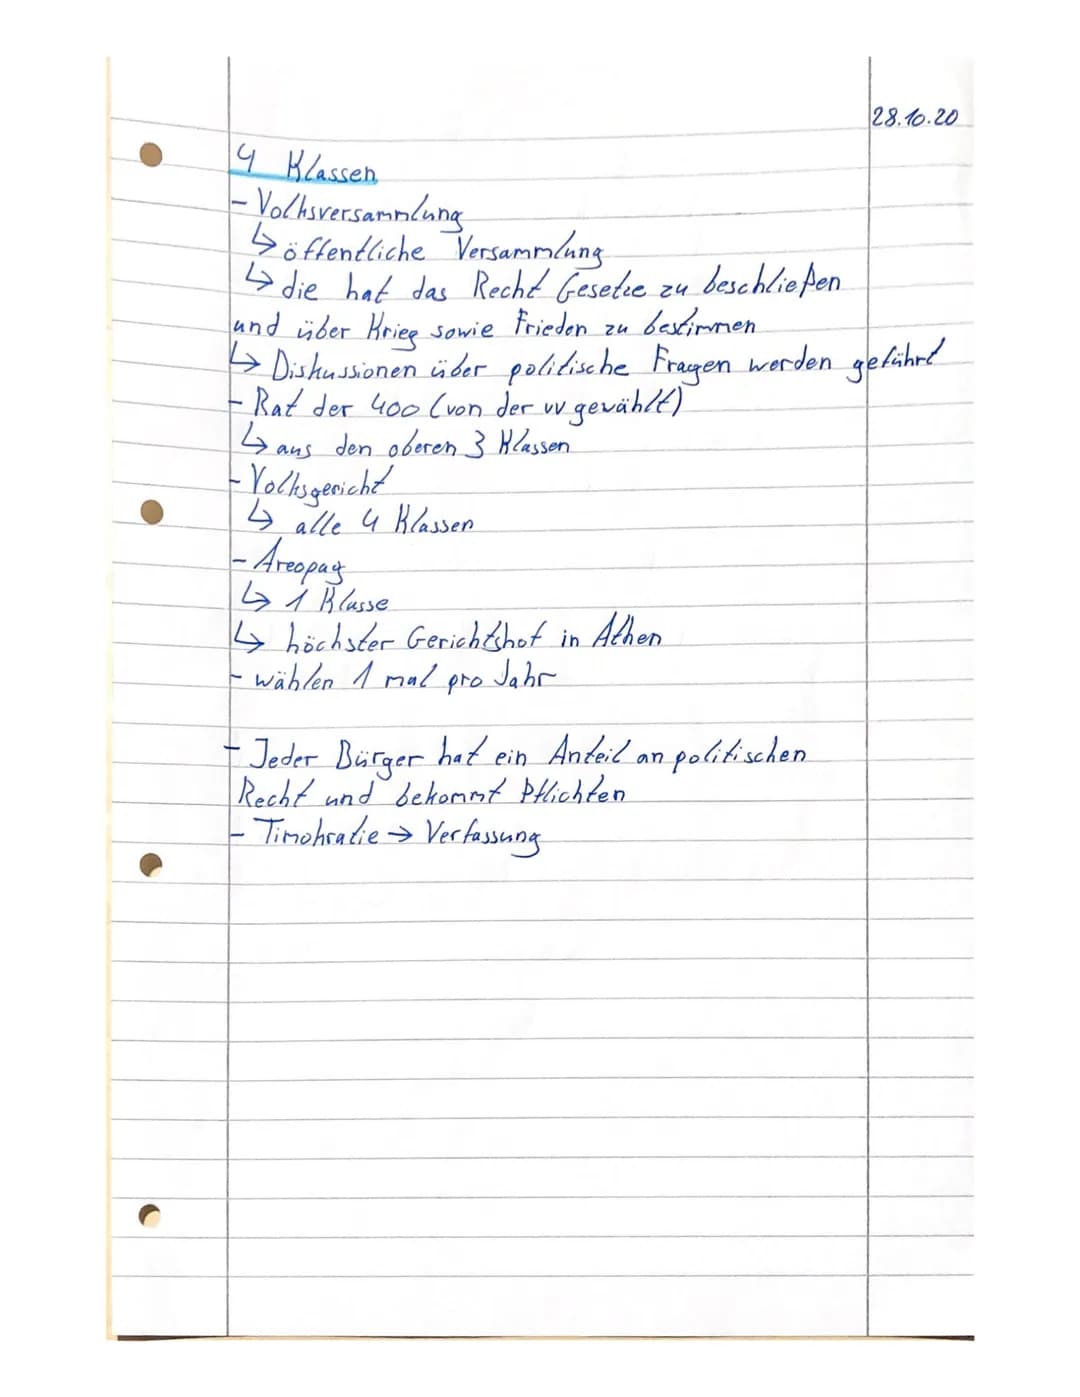 28.10.20
4 Klassen
- Volksversammlung
↳ öffentliche Versammlung
↳ die hat das Recht Gesetze zu beschließen
und über Krieg sowie Frieden zu bestimmen
↳ Diskussionen über politische Fragen werden geführt
- Rat der 400 (von der vv gewählt)
↳ aus den oberen 3 Klassen
- Volksgericht
↳ alle 4 Klassen
- Areopag
↳ 1 Klasse
↳ höchster Gerichtshof in Athen
- wählen 1 mal pro Jahr
- Jeder Bürger hat ein Anteil an politischen
Recht und bekommt Pflichten
- Timokratie → Verfassung